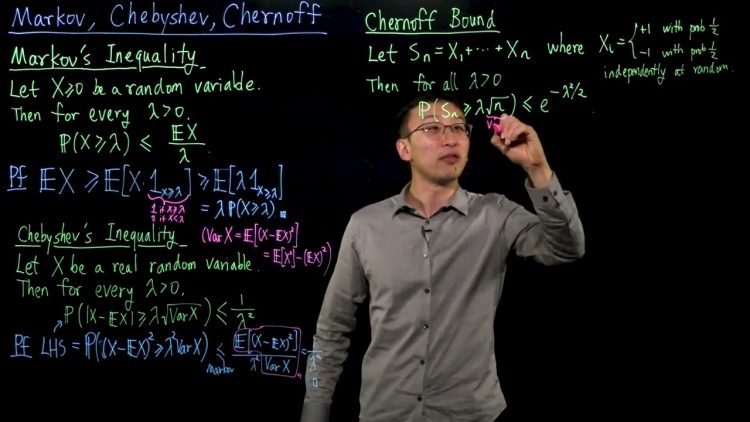 Markov, Chebyshev, Chernoff
Markov's Inequality
Let X⩾0 be a random variable.
Then for every λ>0,
ℙ(X⩾λ) ⩽ 𝔼X/λ
Pf 𝔼X ⩾ 𝔼[X·1_{X⩾λ}] ⩾ 𝔼[λ1_{X⩾λ}]
1 if X⩾λ
0 if X<λ
= λℙ(X⩾λ).
Chebyshev's Inequality
(Var X = 𝔼[(X-𝔼X)²]
= 𝔼[X²]-(𝔼X)²)
Let X be a real random variable.
Then for every λ>0,
ℙ(|X-𝔼X| ⩾ λ√Var X) ⩽ 1/λ²
Pf LHS = ℙ((X-𝔼X)² ⩾ λ² Var X) ⩽ 𝔼[(X-𝔼X)²]/(λ² Var X) = 1/λ²
Markov
Chernoff Bound
Let Sₙ = X₁+⋯+Xₙ where Xᵢ = { +1 with prob ½
-1 with prob ½
independently at random.
Then for all λ>0
ℙ(Sₙ ⩾ λ√n) ⩽ e^{-λ²/2}.